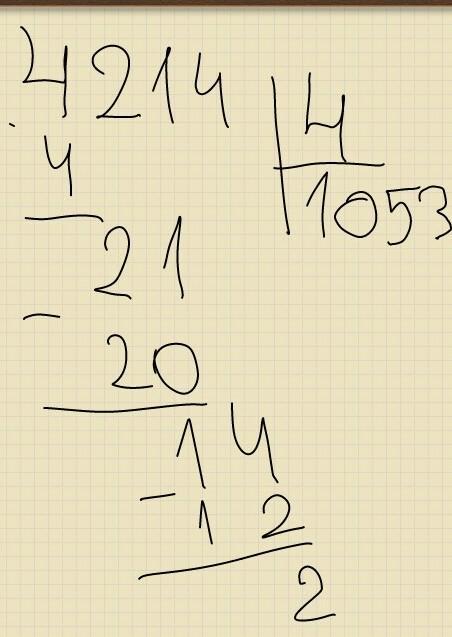 4214 4
4 1053
21
- 20
14
- 12
2